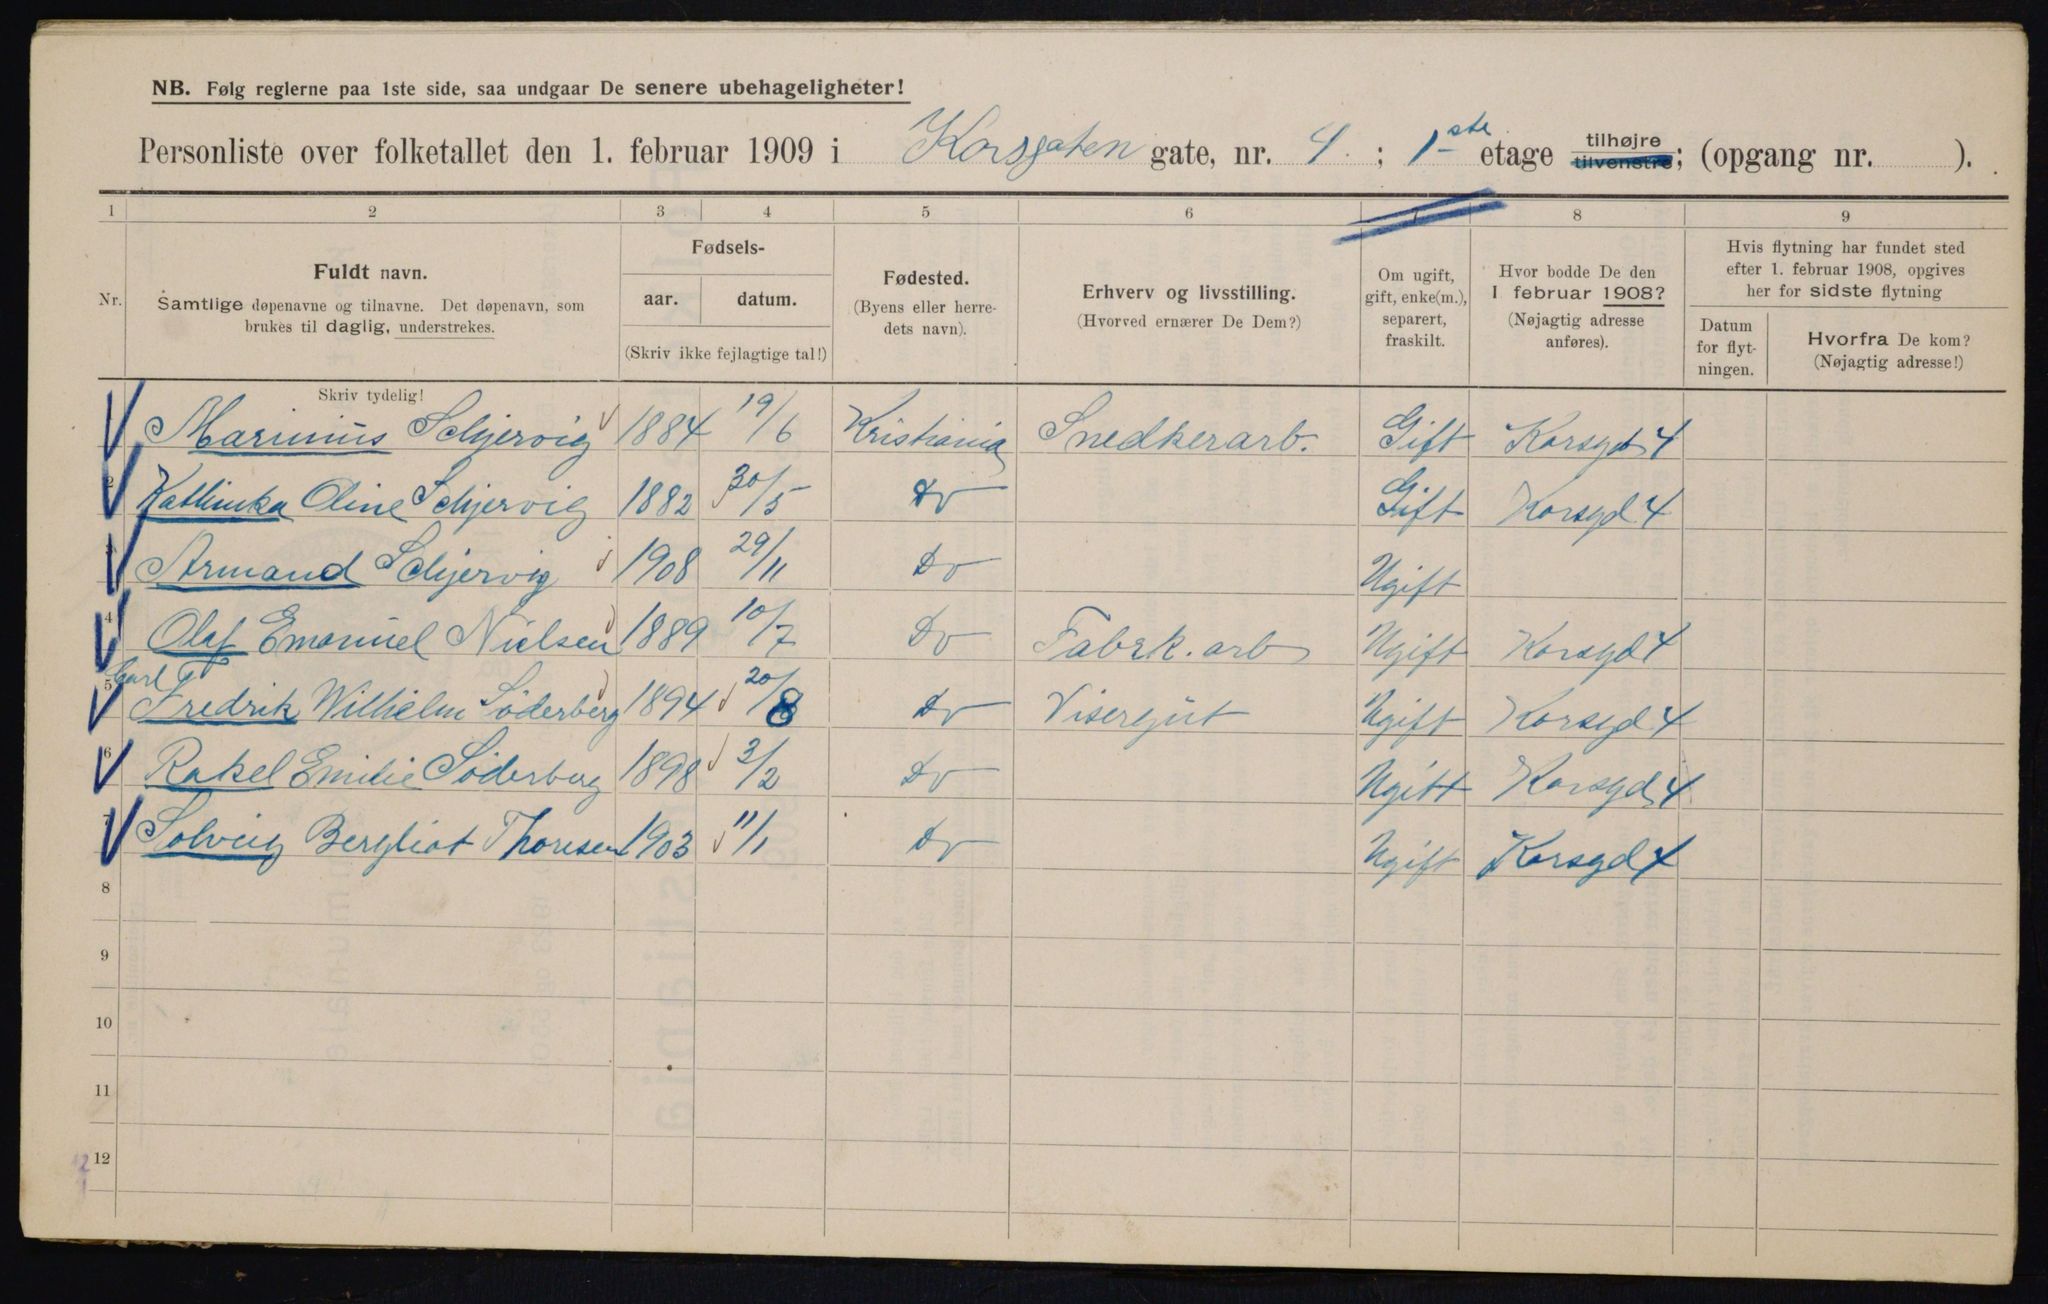 NB. Følg reglerne paa 1ste side, saa undgaar De senere ubehageligheter!
Personliste over folketallet den 1. februar 1909 i Korsgaten gate, nr. 4 ; 1ste etage tilhøjre tilvenstre; (opgang nr. ).
1 2 3 4 5 6 7 8 9
Nr. Fuldt navn. Samtlige døpenavne og tilnavne. Det døpenavn, som brukes til daglig, understrekes.
Fødsels- aar. datum. (Skriv ikke fejlagtige tal!)
Fødested. (Byens eller herredets navn).
Erhverv og livsstilling. (Hvorved ernærer De Dem?)
Om ugift, gift, enke(m.), separert, fraskilt.
Hvor bodde De den 1 februar 1908? (Nøjagtig adresse anføres).
Hvis flytning har fundet sted efter 1. februar 1908, opgives her for sidste flytning
Datum for flytningen.
Hvorfra De kom? (Nøjagtig adresse!)
Skriv tydelig!
Marinius Schjervig 1884 19/6 Kristiania Snedkerarb. Gift Korsgd 4
2 Kathinka Oline Schjervig 1882 30/5 Do Gift Korsgd 4
3 Armand Schjervig 1908 29/11 Do Ugift
4 Olaf Emanuel Nielsen 1889 10/7 Do Fabrk. arb Ugift Korsgd 4
Carl
5 Fredrik Wilhelm Söderberg 1894 20/8 Do Visergut Ugift Korsgd 4
6 Rakel Emilie Söderberg 1898 3/2 Do Ugift Korsgd 4
7 Solveig Bergliot Thoresen 1903 11/1 Do Ugift Korsgd 4
8
9
10
11
12